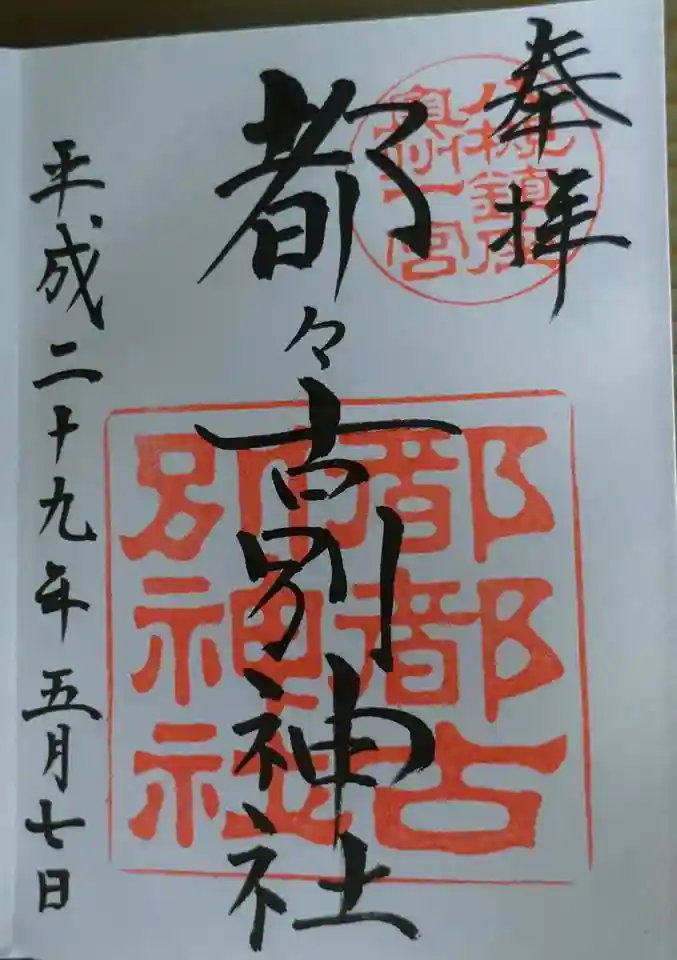 奉拝
八槻鎮座
奥州一宮
都々古別神社
都都古
別神社
平成二十九年五月七日